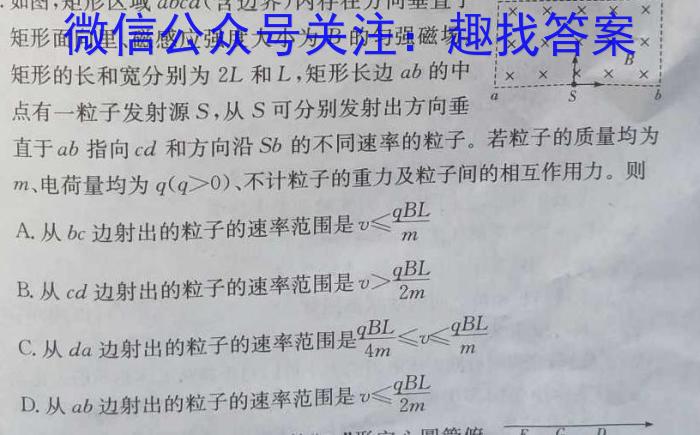 如图,矩形区域 abcd(含边界)内存在方向垂直于
矩形面
里、磁感应强度大小为
的匀强磁场
微信公众号关注：趣找答案
× × × ×
× B
× × × × ×
a S b
矩形的长和宽分别为 2L 和 L,矩形长边 ab 的中
点有一粒子发射源 S,从 S 可分别发射出方向垂
直于ab 指向cd 和方向沿 Sb 的不同速率的粒子。若粒子的质量均为
m、电荷量均为 q(q>0)、不计粒子的重力及粒子间的相互作用力。则
A. 从 bc 边射出的粒子的速率范围是 v≤qBL/m
B. 从 cd 边射出的粒子的速率范围是 v>qBL/2m
C. 从 da 边射出的粒子的速率范围是qBL/4m≤v≤qBL/m
D. 从 ab 边射出的粒子的速率范围是 v≤qBL/2m